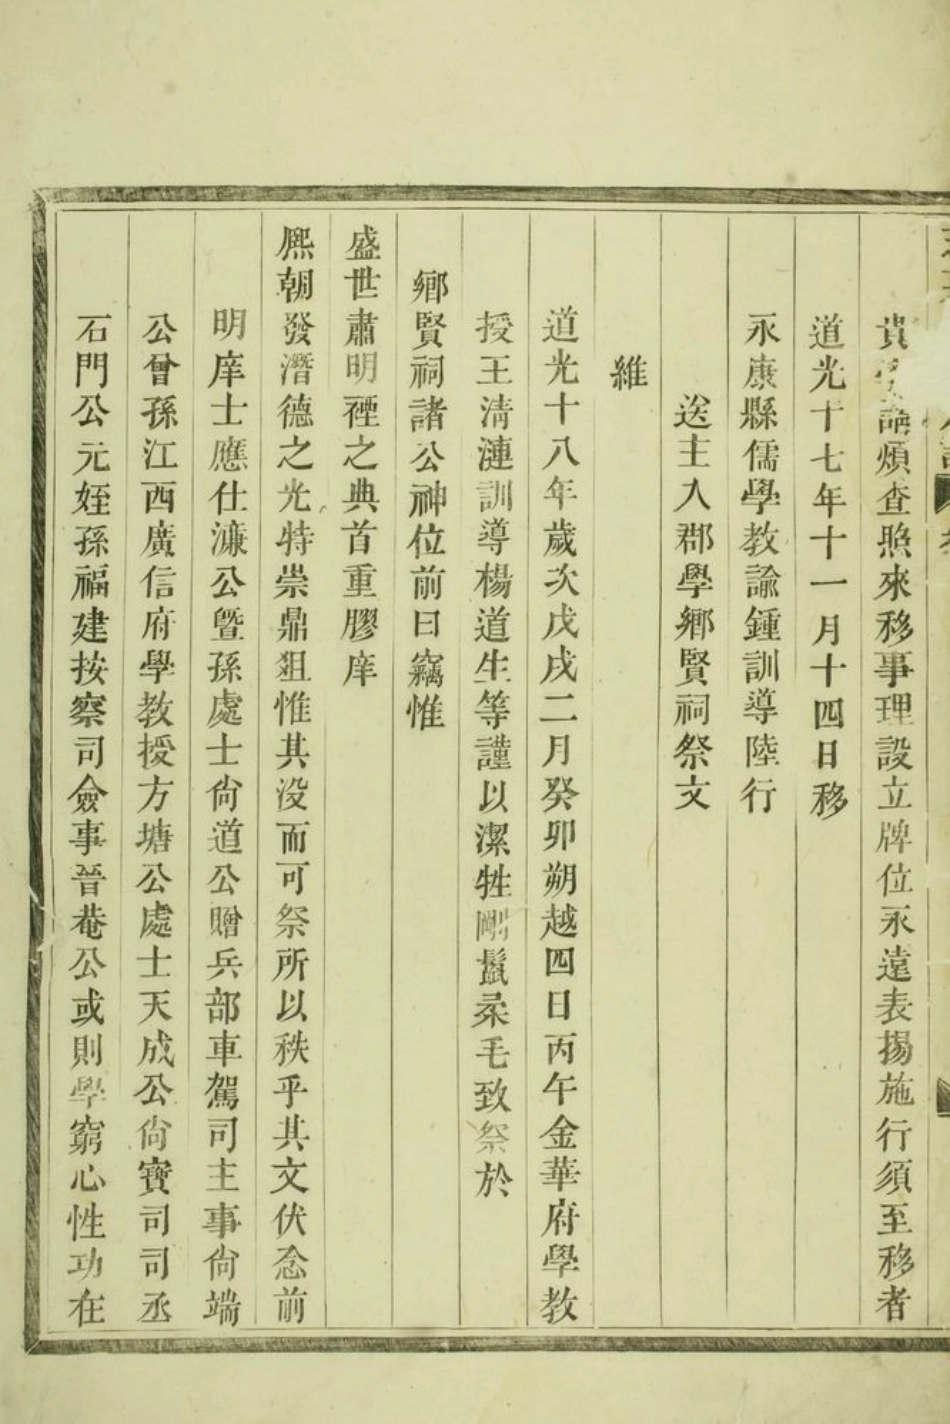 貴學請煩查照來移事理設立牌位永遠表揚施行須至移者
道光十七年十一月十四日移
永康縣儒學教諭鍾訓導陸行
送主入郡學鄉賢祠祭文
維
道光十八年歲次戊戌二月癸卯朔越四日丙午金華府學教
授王清漣訓導楊道生等謹以潔牲剛鬣柔毛致祭於
鄉賢祠諸公神位前曰竊惟
盛世肅明禋之典首重膠庠
熙朝發潛德之光特崇鼎俎惟其沒而可祭所以秩乎其文伏念前
明庠士應仕濂公暨孫處士尙道公贈兵部車駕司主事尙端
公曾孫江西廣信府學教授方塘公處士天成公尙寶司司丞
石門公元姪孫福建按察司僉事晉菴公或則學窮心性功在